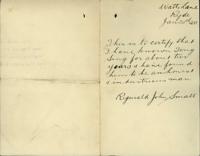 Watts Lane
Ryde
Jan 20th
This is to certify that
I have known Tong
Sing for about ten
years & have found
him to be an honest
& industrious man
Reginald John Small